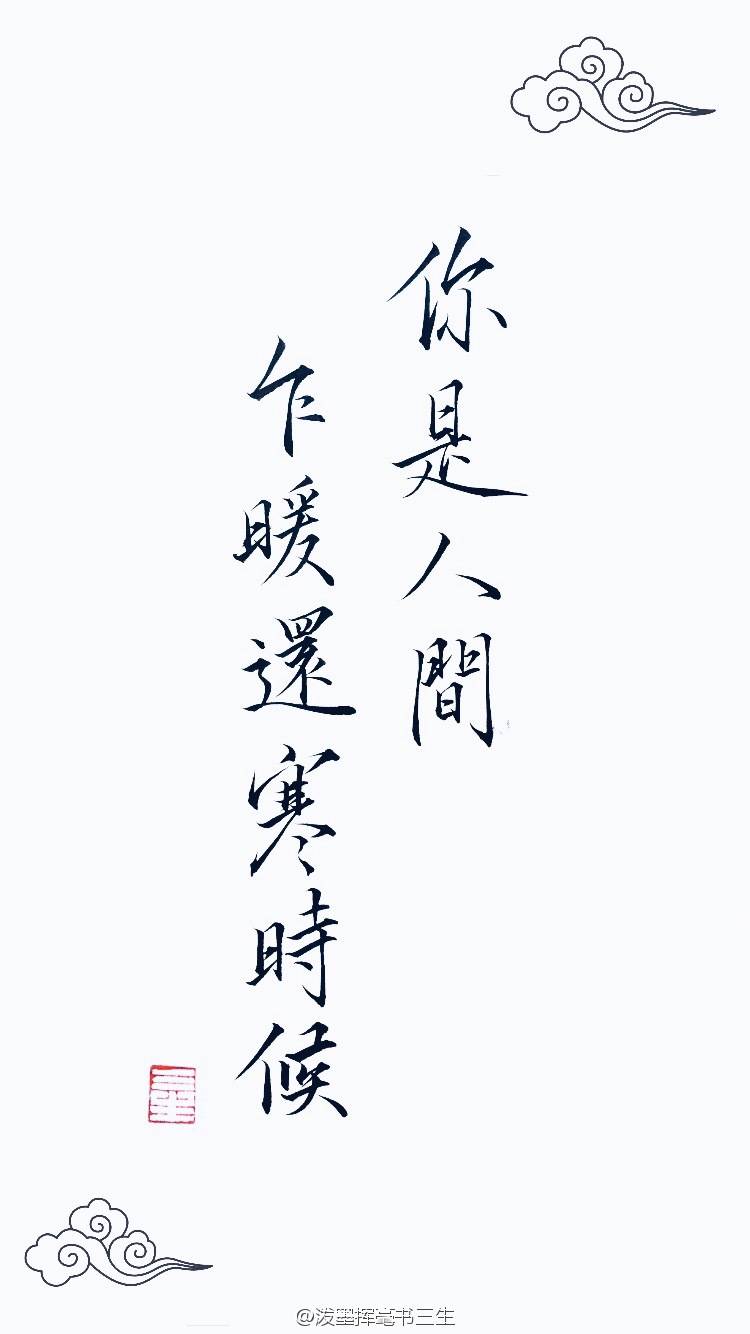 你是人間
乍暖還寒時候
三生
@泼墨挥毫书三生